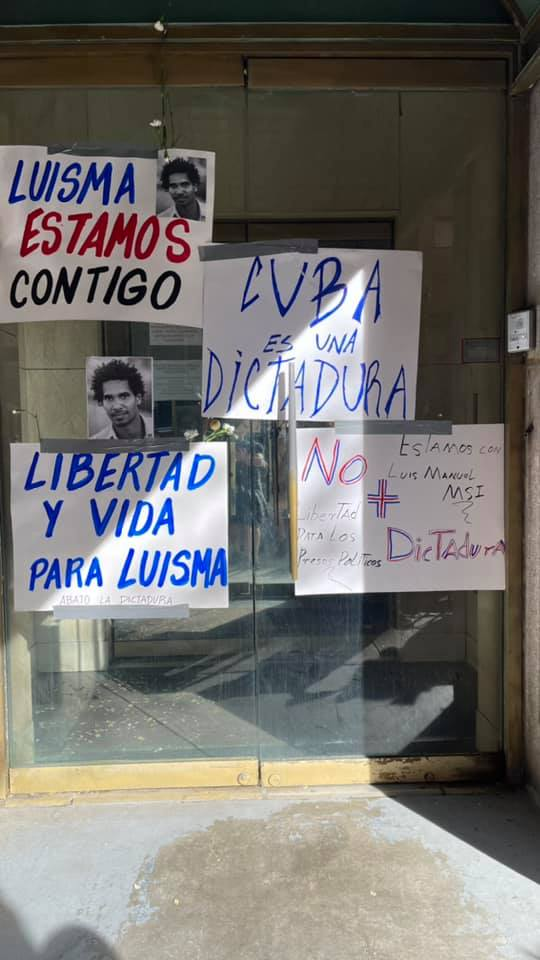 LUISMA
ESTAMOS
CONTIGO
CUBA
ES UNA
DICTADURA
LIBERTAD
Y VIDA
PARA LUISMA
ABAJO LA DICTADURA
NO +
DicTadura
Estamos con
Luis Manuel
MSI
Libertad
Para Los
Presos Políticos